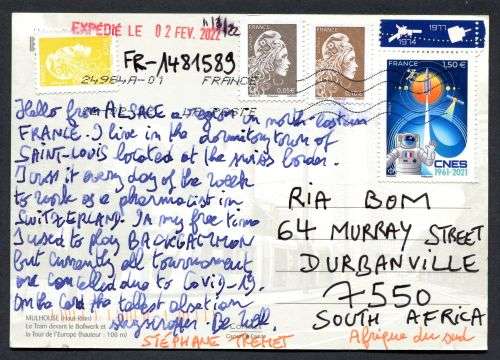 EXPÉDIÉ LE 02 FEV. 2022
FR-1481589
24984A-01 FRANCE
FRANCE
0,05€
FRANCE
1974 1977
FRANCE 1,50€
CNES
1961-2021
Hello from ALSACE a region in north-eastern
FRANCE. I live in the dormitory town of
SAINT-LOUIS located at the swiss border.
I cross it every day of the week
to work as a pharmacist in
SWITZERLAND. In my free time
I used to play BACKGAMMON
but currently all tournament
are cancelled due to Covid-19.
On the card the tallest
skyscraper. Be well.
STEPHANE
MULHOUSE (Haut-Rhin)
Le Tram devant le Bollwerk et
la Tour de l'Europe (hauteur : 100 m)
RIA BOM
64 MURRAY STREET
DURBANVILLE
7550
SOUTH AFRICA
Afrique du sud